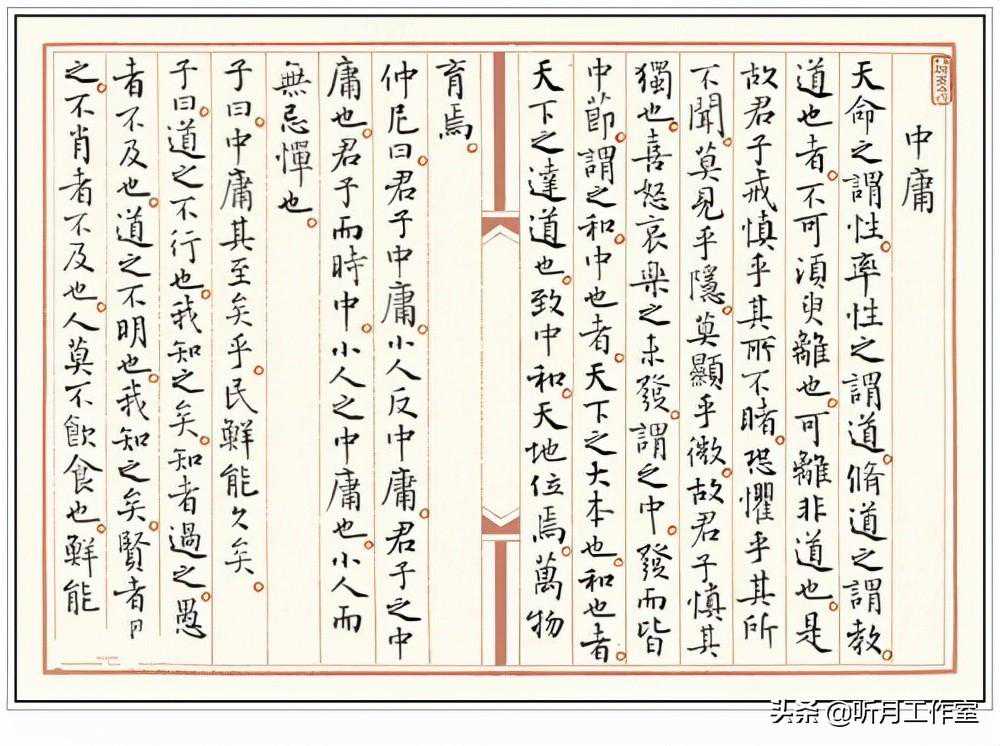 中庸
天命之謂性。率性之謂道。脩道之謂教。
道也者。不可須臾離也。可離非道也。是
故君子戒慎乎其所不睹。恐懼乎其所
不聞。莫見乎隱。莫顯乎微。故君子慎其
獨也。喜怒哀樂之未發。謂之中。發而皆
中節。謂之和。中也者。天下之大本也。和也者。
天下之達道也。致中和。天地位焉。萬物
育焉。
仲尼曰。君子中庸。小人反中庸。君子之中
庸也。君子而時中。小人之中庸也。小人而
無忌憚也。
子曰。中庸其至矣乎。民鮮能久矣。
子曰。道之不行也。我知之矣。知者過之。愚
者不及也。道之不明也。我知之矣。賢者
之。不肖者不及也。人莫不飲食也。鮮能
头条 @听月工作室